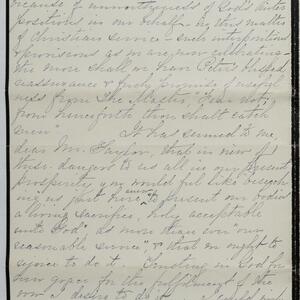 because of unworthyness of God's inter
positions in our behalf - in this matter
of Christian service - such interpositions
& provisions as we are now celebrating -
the more shall we hear Peter's blessed
reassurance & lovely promise of useful
ness from The Master, "Fear not;
from henceforth thou shalt catch
men." It has seemed to me,
dear Mr. , that in view of
these dangers to us all in our present
prosperity you would feel like beseech
ing us just here, "to present our bodies
a living sacrifice, holy, acceptable
unto God", as more than ever "our
reasonable service", & that we ought to
rejoice to do it. Trusting in God for
grace for the fulfillment of the
vow desire to do